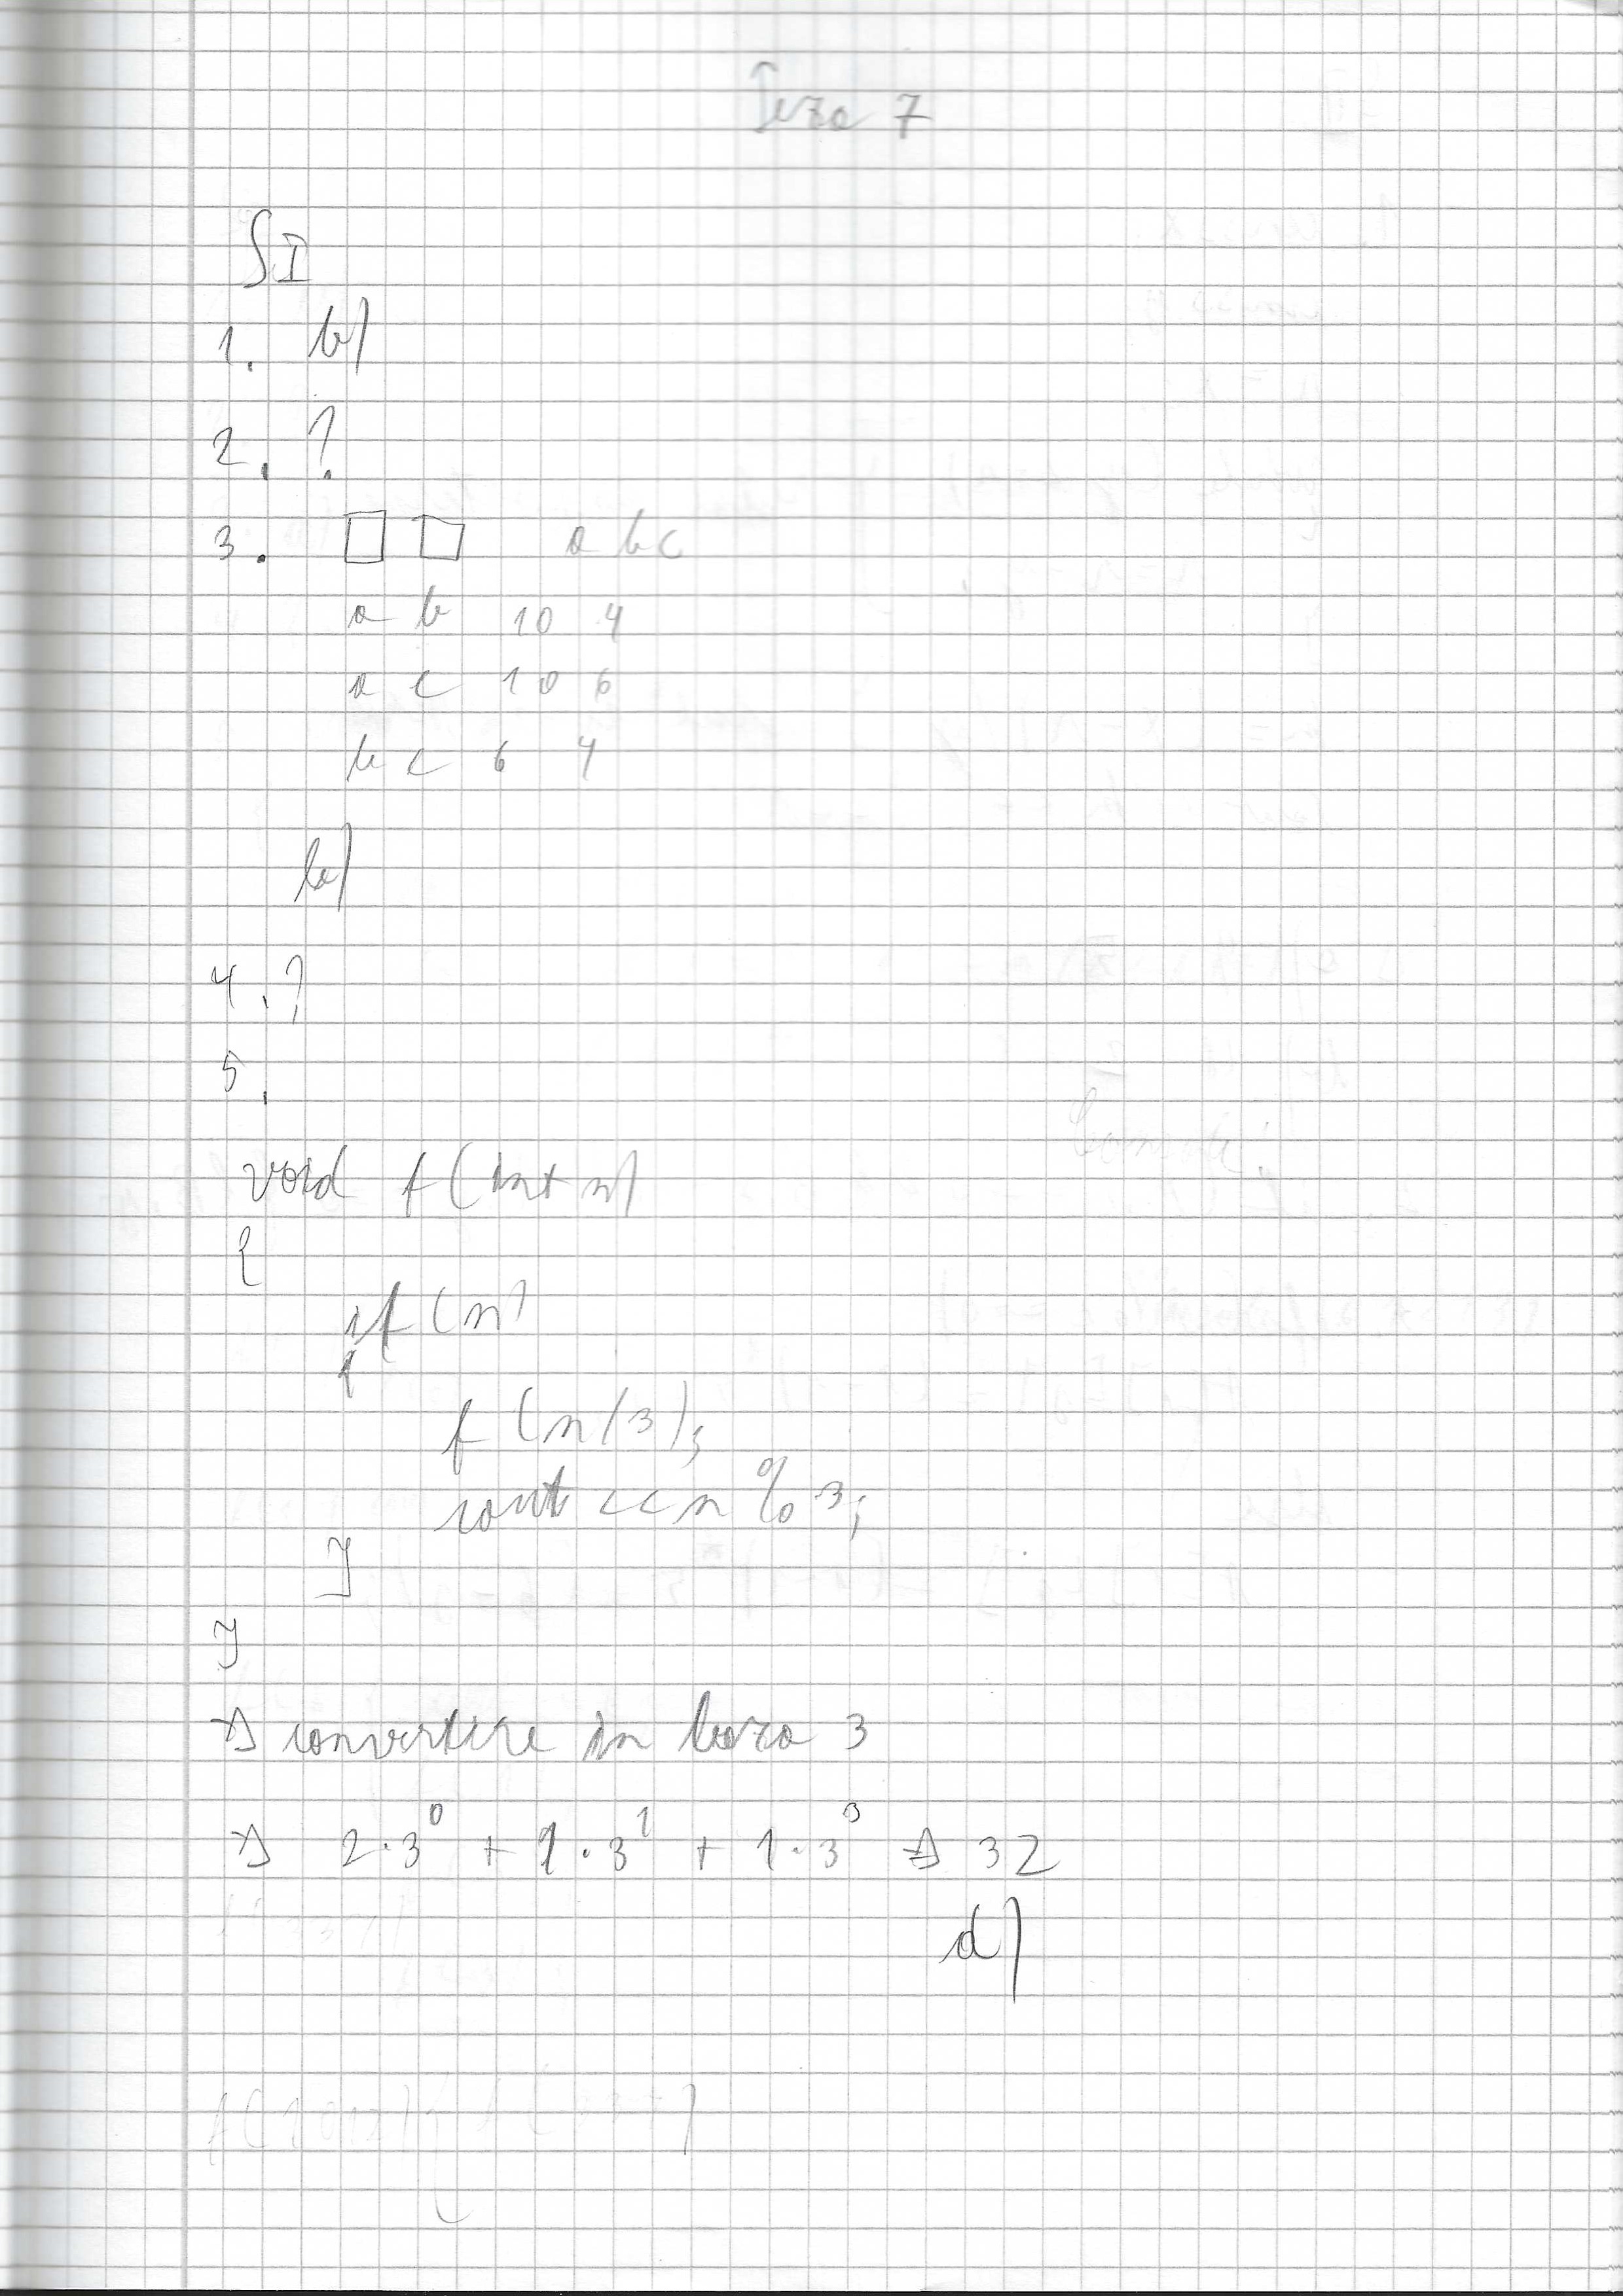 Teza 7
SI
1. b)
2. ?
3. a b c
a b 10 4
a c 10 6
b c 6 4
b)
4. ?
5.
void f(int n)
{
if(n)
{
f(n/3);
cout<<n%3;
}
}
=> convertire in baza 3
=> 2·3⁰ + 1·3¹ + 1·3³ => 32
d)